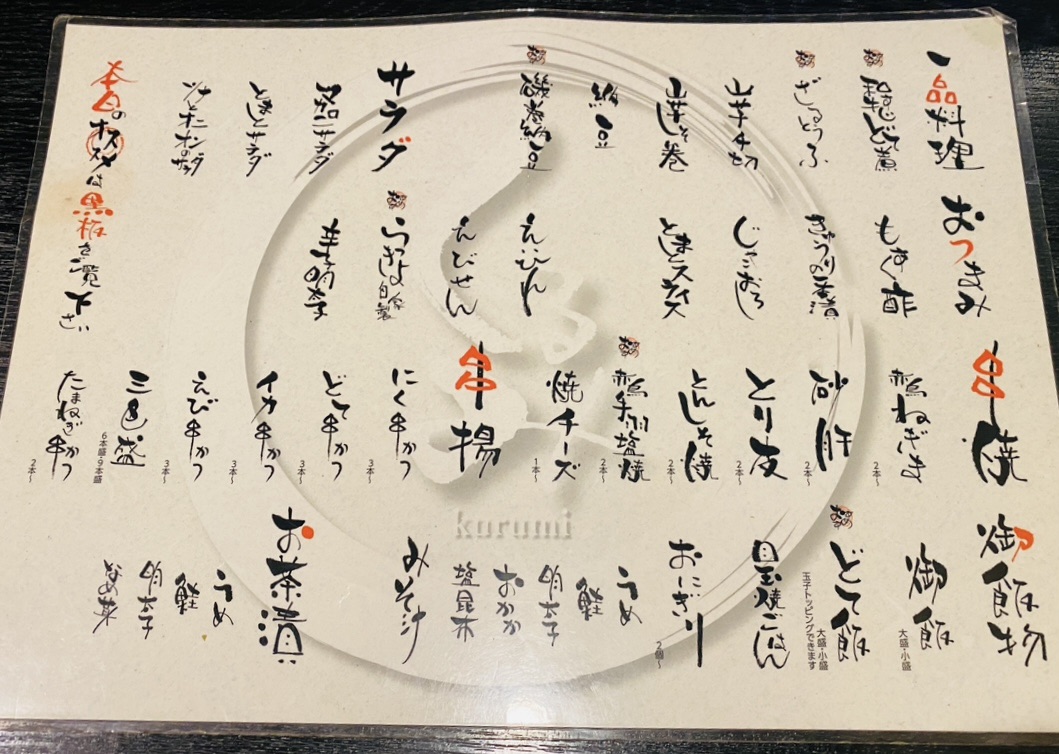 一品料理
和牛すじどて煮
ざるどうふ
山芋千切
山芋しそ巻
納豆
磯巻納豆
サラダ
マカロニサラダ
とまとサラダ
ツナオニオンサラダ
おつまみ
もずく酢
きゅうりの一本漬
じゃこおろし
とまとスライス
えいひれ
えびせん
らっきょ
自家製
辛子明太子
串焼
赤鳥ねぎま
2本〜
砂肝
2本〜
とり皮
2本〜
とんしそ焼
2本〜
赤鳥手羽塩焼
2本〜
焼チーズ
1本〜
串揚
にく串かつ
3本〜
どて串かつ
3本〜
イカ串かつ
3本〜
えび串かつ
3本〜
三色盛
6本盛・9本盛
たまねぎ串かつ
2本〜
御飯物
御飯
大盛・小盛
どて飯
大盛・小盛
玉子トッピングできます
目玉焼ごはん
おにぎり
2個〜
うめ
鮭
明太子
おかか
塩昆布
みそ汁
お茶漬
うめ
鮭
明太子
なめ茸
本日のオススメは黒板をご覧下さい
kurumi